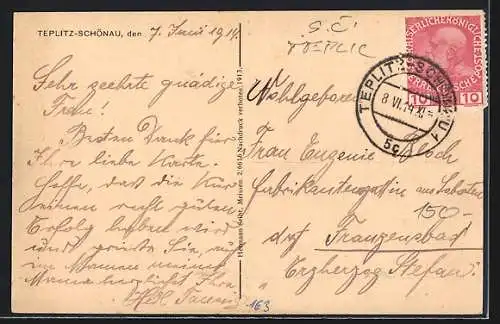 TEPLITZ-SCHÖNAU, den 7. Juni 1914.
Sehr geehrte gnädige
Frau!
Besten Dank für
Ihre liebe Karte.
Hoffe, daß die Kur
recht guten
Erfolg haben wird
und grüsse Sie, auf
im Namen meines
Mannes herzlichst Ihre
Hermann Seibt, Meissen 2, 6610 Nachdruck verboten 1913.
S. Č.
TEPLIC
KAISERLICHE KÖNIGLICHE ÖSTERREICHISCHE
10 10
TEPLITZ-SCHÖNAU 1
8 VI 14 XI
5c
Wohlgeboren
Frau Eugenie Bloch
Fabrikantengattin aus
150-
dzt Franzensbad
"Erzherzog Stefan"
163